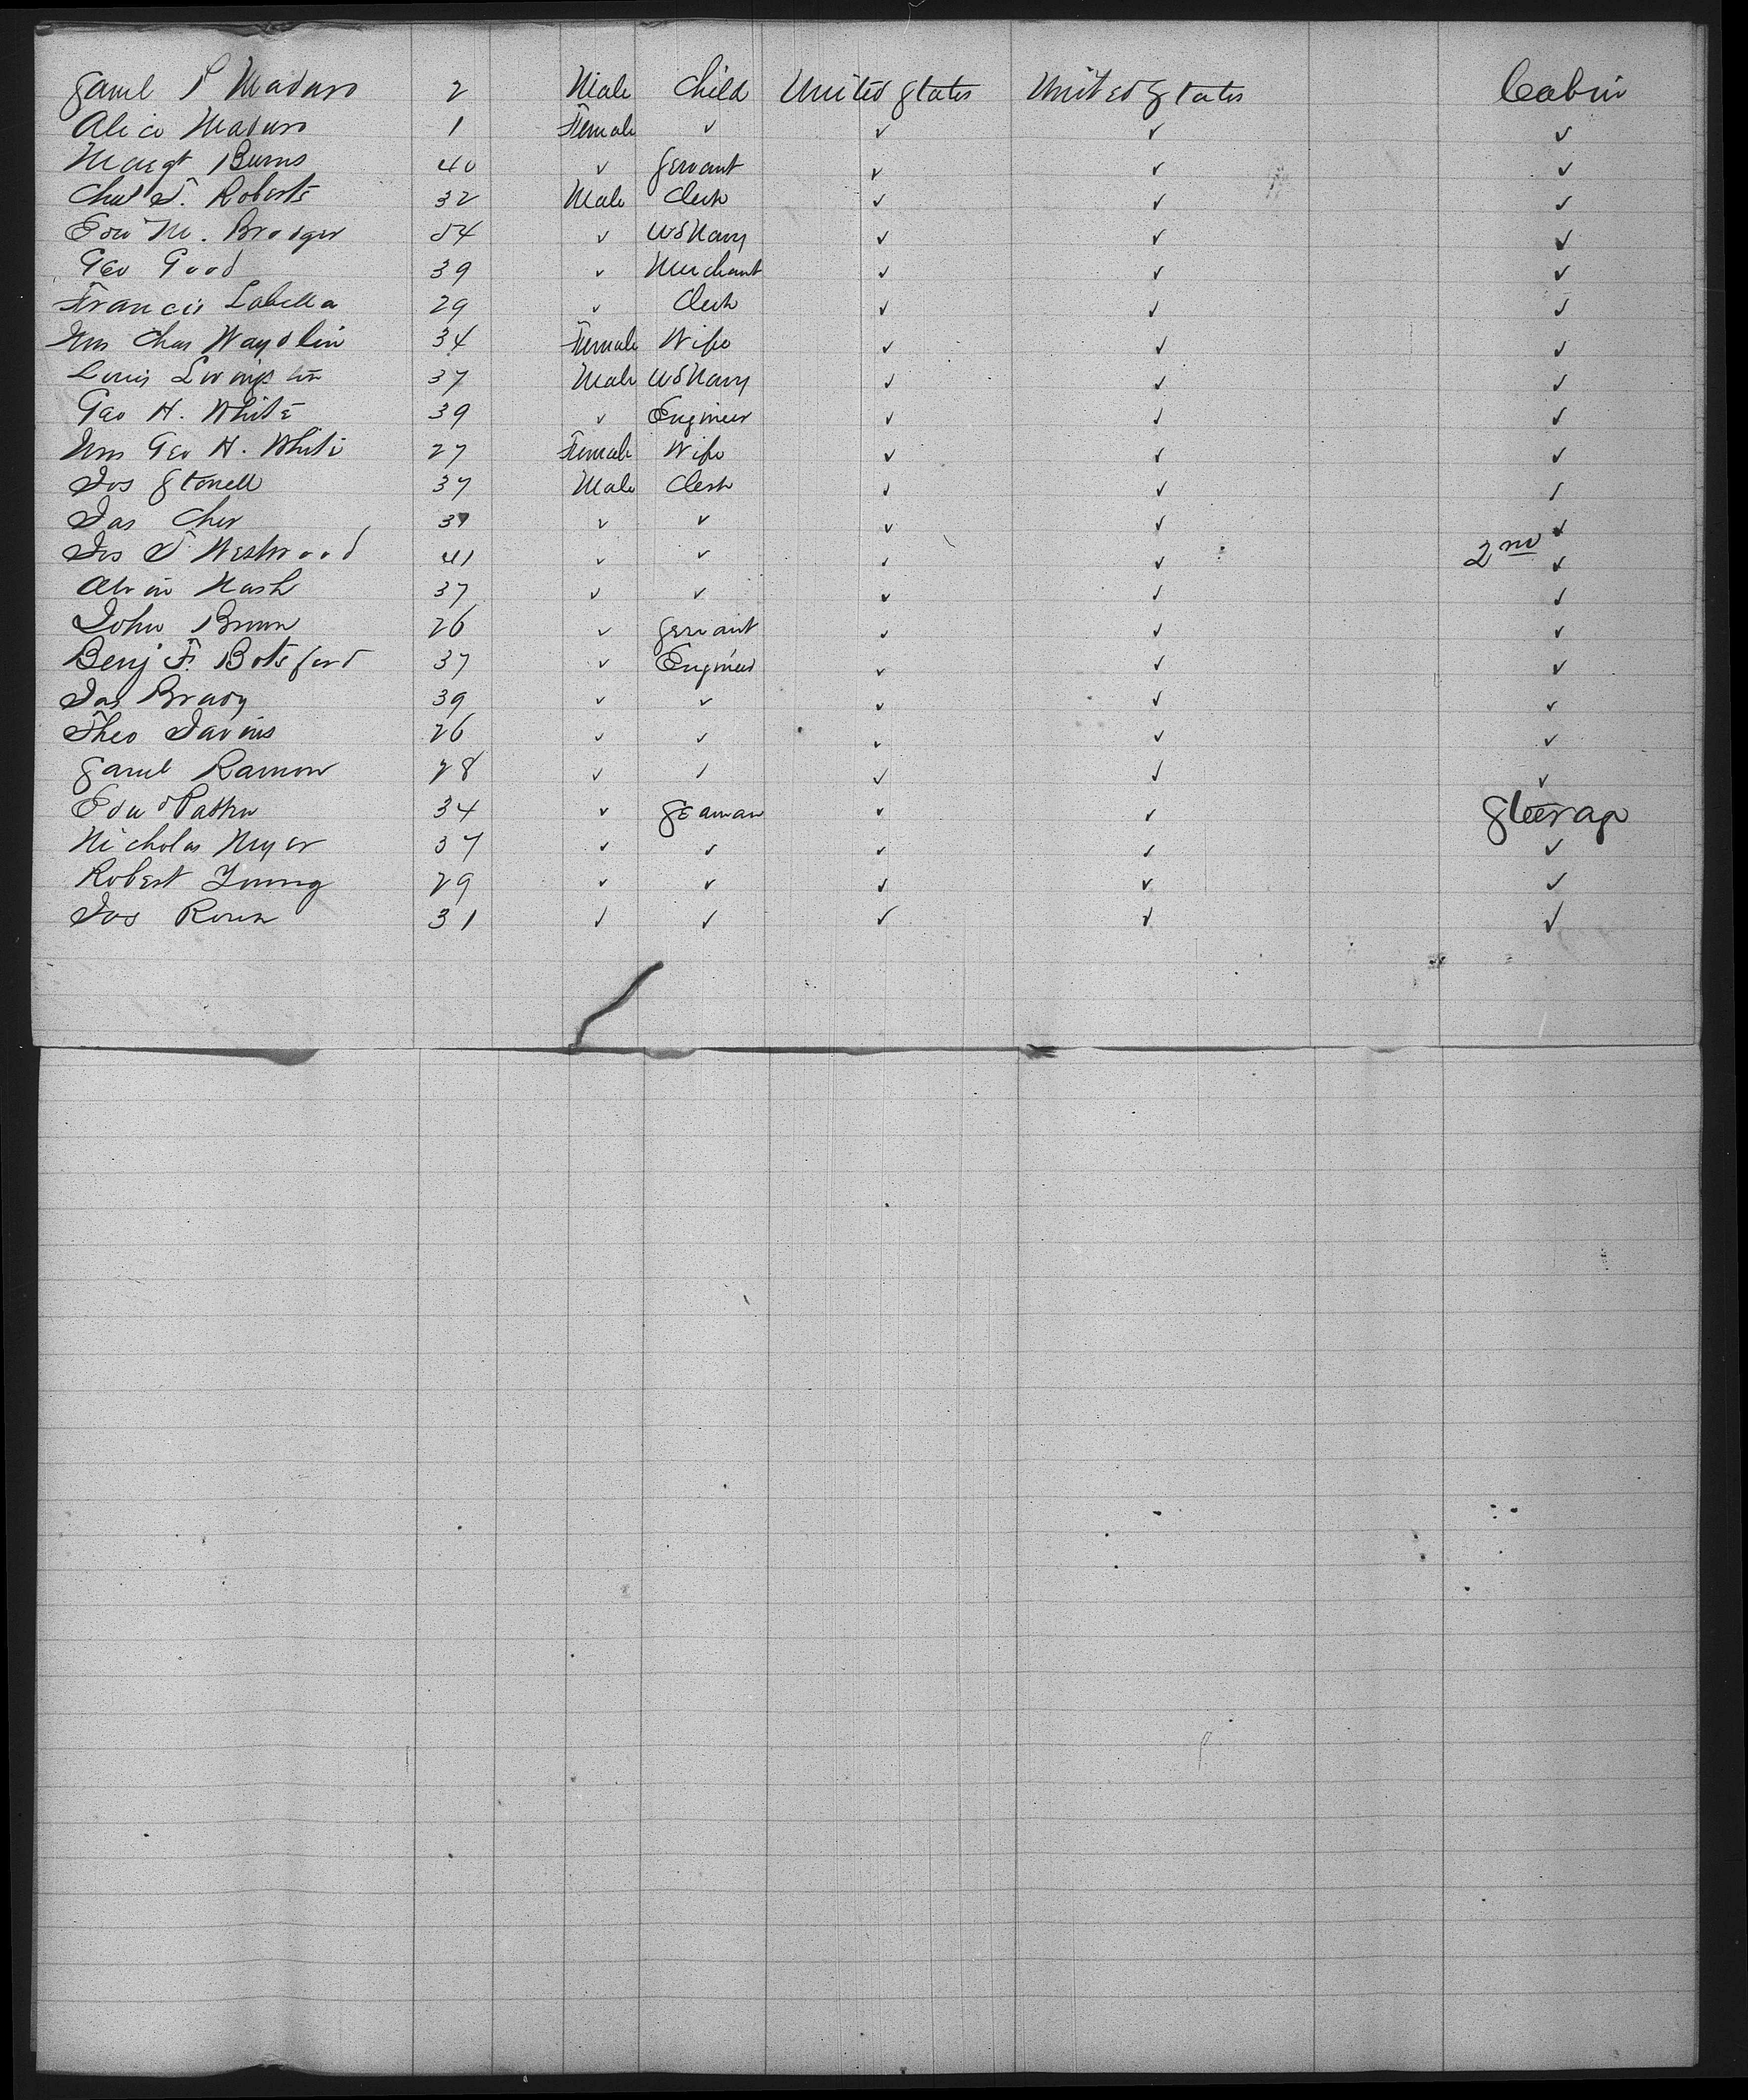 Saml P Maduro 2 Male Child United States United States Cabin
Alice Maduro 1 Female ✓ ✓ ✓ ✓
Margt Burns 40 ✓ Servant ✓ ✓ ✓
Chas T. Roberts 32 Male Clerk ✓ ✓ ✓
Edw M. Bradger 54 ✓ US Navy ✓ ✓ ✓
Geo Good 39 ✓ Merchant ✓ ✓ ✓
Francis Labella 29 ✓ Clerk ✓ ✓ ✓
Mrs Chas 34 Female Wife ✓ ✓ ✓
Louis Livingston 37 Male US Navy ✓ ✓ ✓
Geo H. White 39 ✓ Engineer ✓ ✓ ✓
Mrs Geo H. White 27 Female Wife ✓ ✓ ✓
Jos 37 Male Clerk ✓ ✓ ✓
Jas 37 ✓ ✓ ✓ ✓ ✓
Jos T Westwood 41 ✓ ✓ ✓ ✓ 2nd ✓
Alvin Nash 37 ✓ ✓ ✓ ✓ ✓
John 26 ✓ Servant ✓ ✓ ✓
Benj F. Botsford 37 ✓ Engineer ✓ ✓ ✓
Jas Brady 39 ✓ ✓ ✓ ✓ ✓
Theo 26 ✓ ✓ ✓ ✓ ✓
Saml Ramon 28 ✓ ✓ ✓ ✓ ✓
Edw 34 ✓ Seaman ✓ ✓ Steerage
Nicholas Myer 37 ✓ ✓ ✓ ✓ ✓
Robert Young 29 ✓ ✓ ✓ ✓ ✓
Jos 31 ✓ ✓ ✓ ✓ ✓